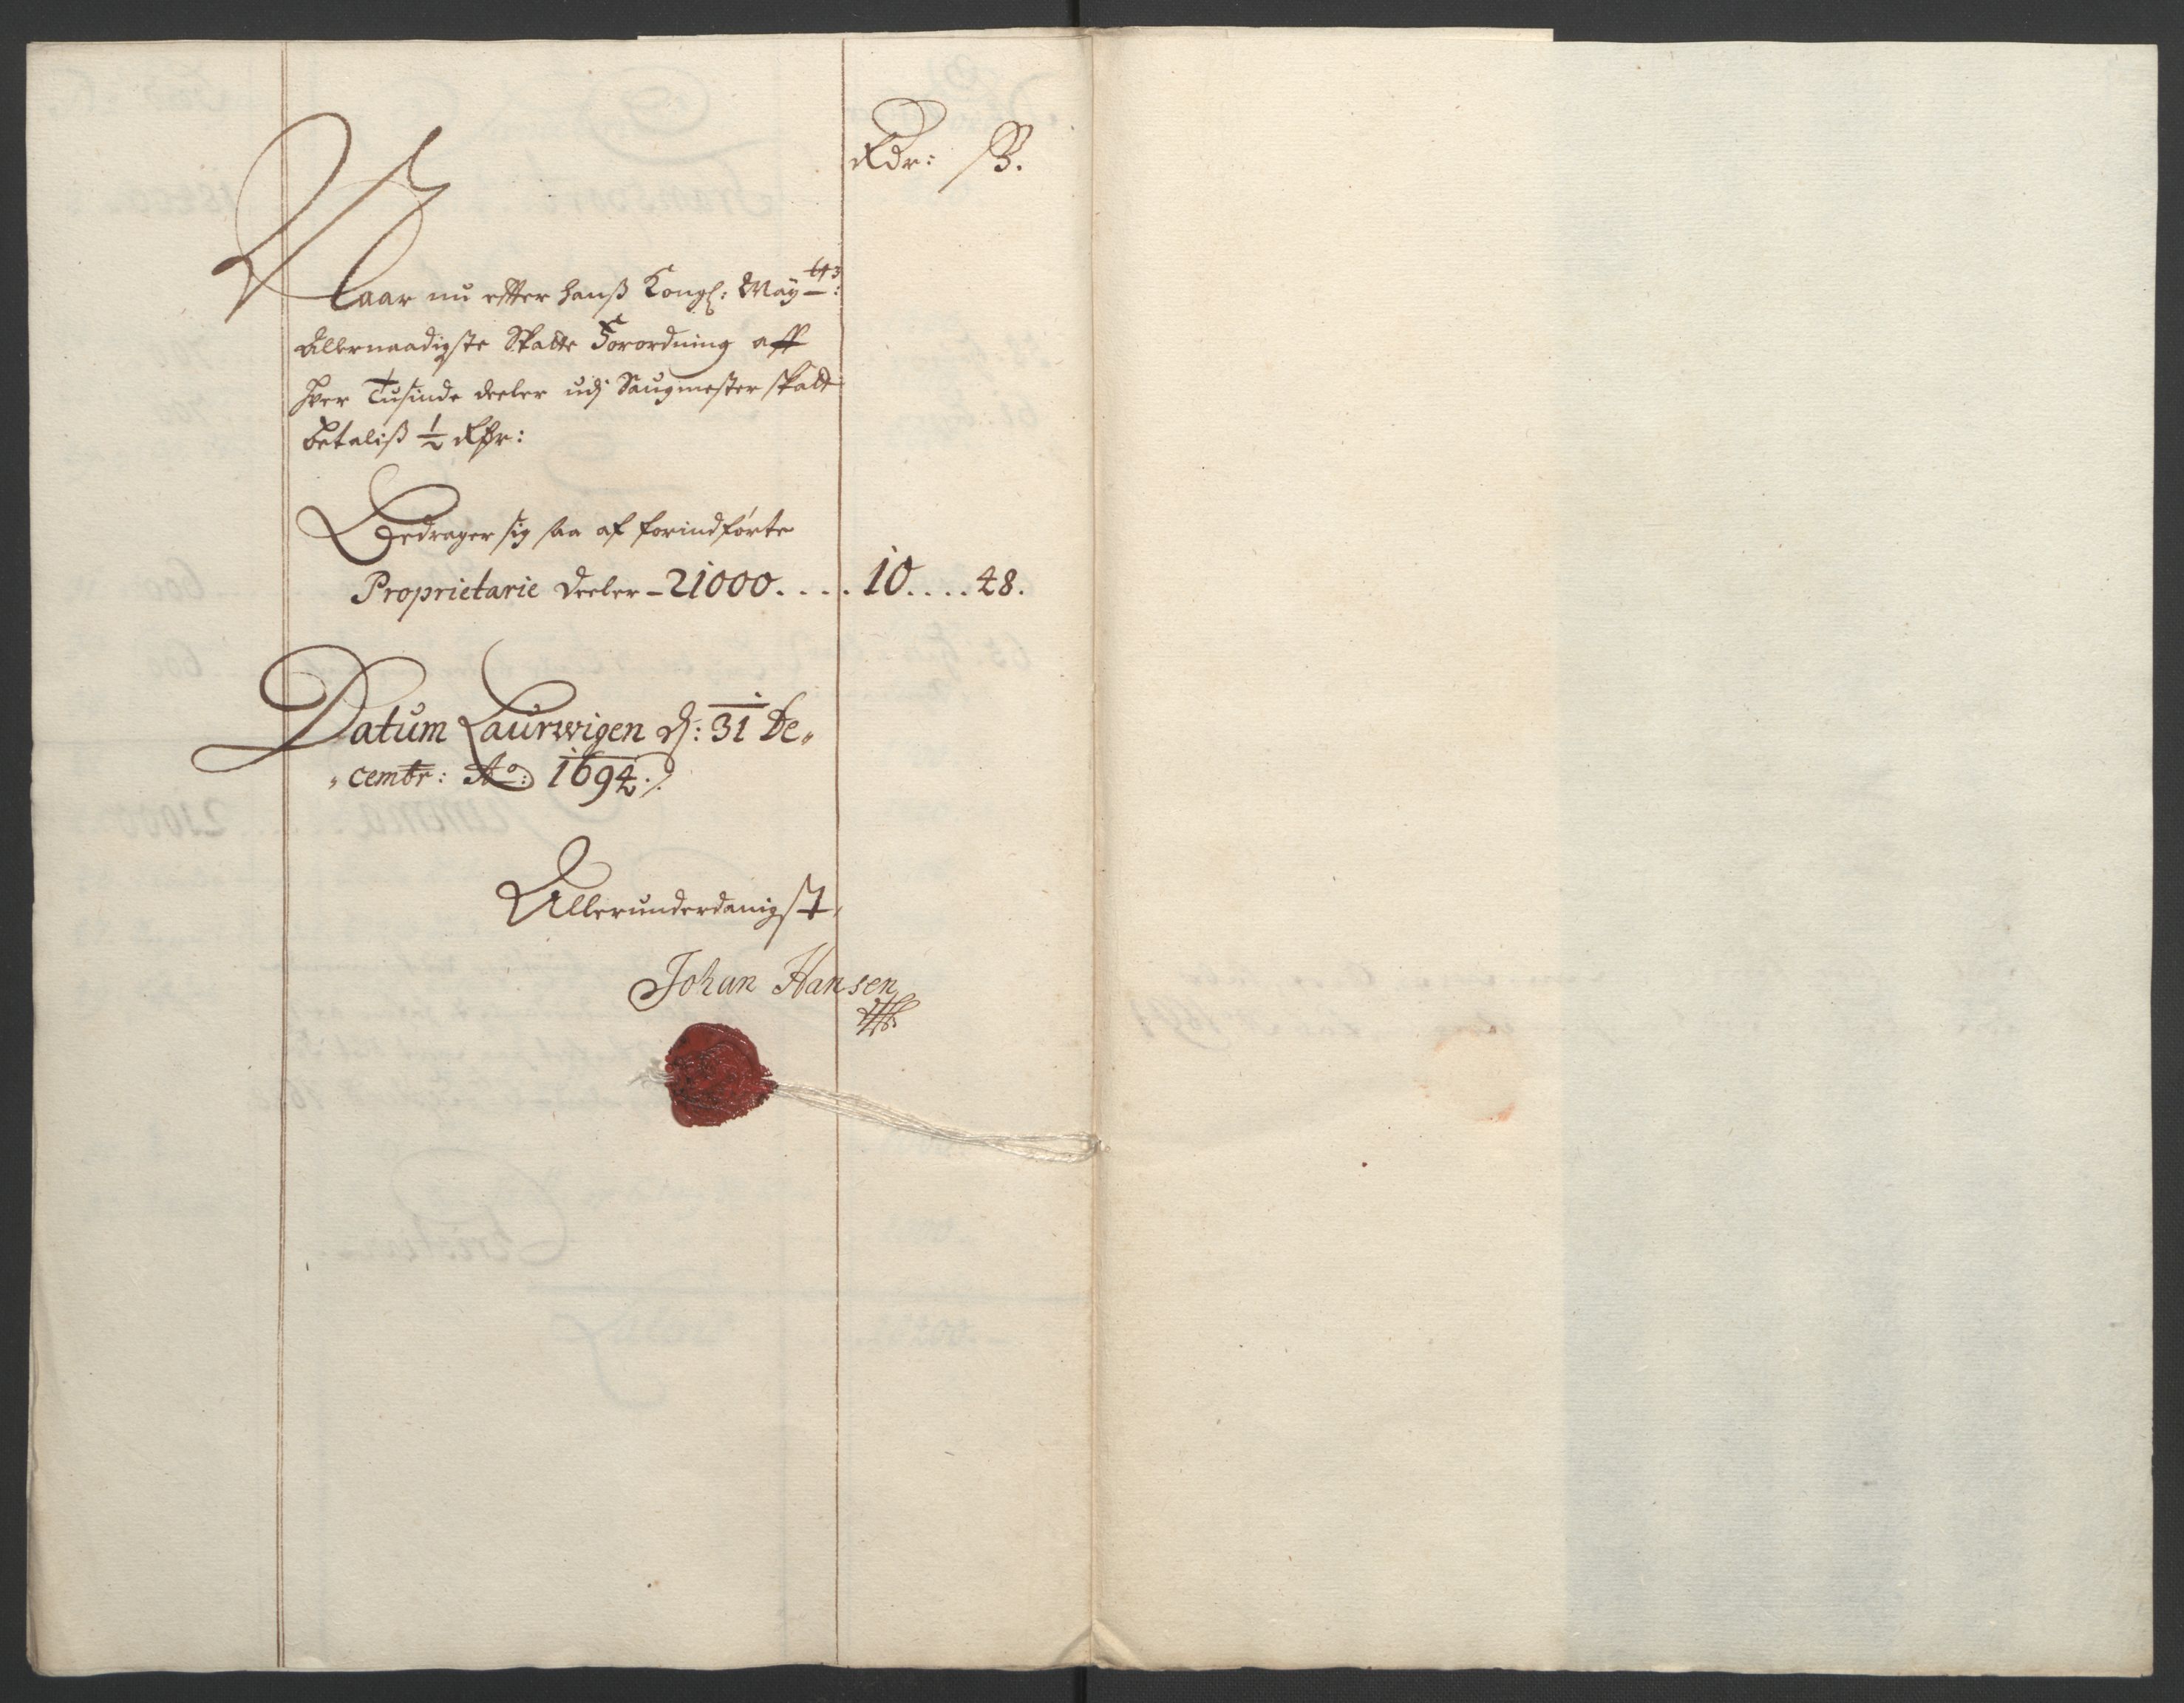 Rdr: ß.
Naar nu effter hanß Kongl: May_tts:
Allernaadigste Skatte Forordning aff
hver Tusinde deeler udj Saugmester skatt
betaliß ½ Rdr:
Bedrager sig saa af forindførte
Proprietarie deeler - 21000 . . . . 10 . . . . 48.
Datum Laurwigen d: 31 De„
„cembr: Ao: 1694 ./.
Allerunderdanigst,
Johan Hansen